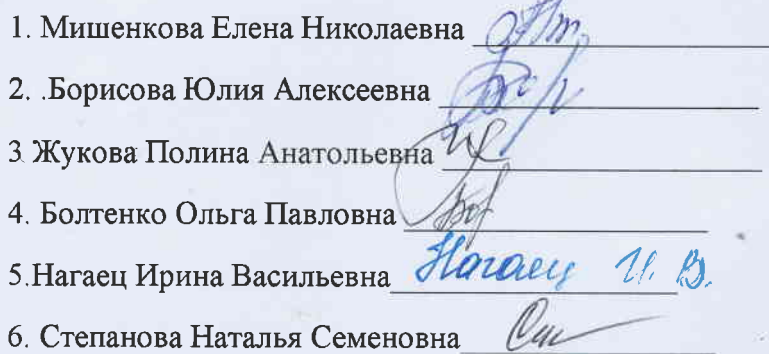 1. Мишенкова Елена Николаевна
2. .Борисова Юлия Алексеевна
3 Жукова Полина Анатольевна
4. Болтенко Ольга Павловна
5.Нагаец Ирина Васильевна Нагаец И. В.
6. Степанова Наталья Семеновна